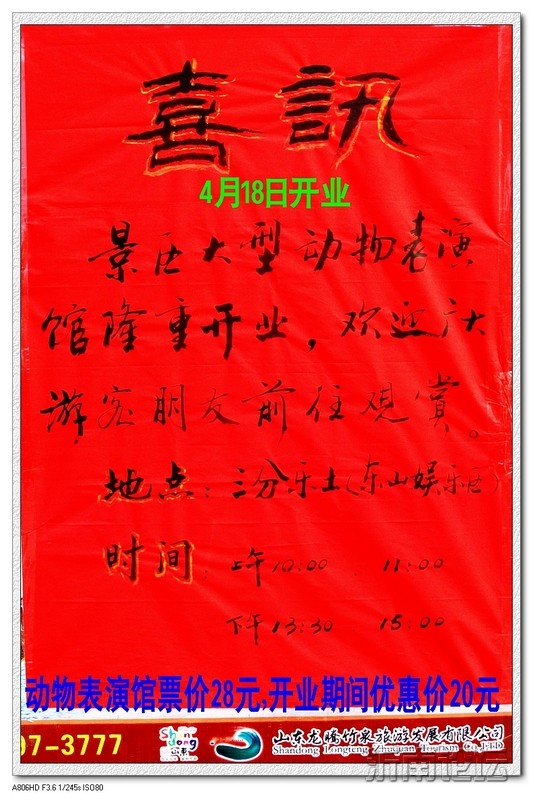 喜訊
4月18日开业
景区大型动物表演
馆隆重开业，欢迎广大
游客朋友前往观赏。
地点：三分乐土(东山娱乐区)
时间：上午10:00 11:00
下午13:30 15:00
动物表演馆票价28元,开业期间优惠价20元
97-3777
山东龙腾竹泉旅游发展有限公司
Shandong Longteng Zhuquan Tourism Co,LTD
沂南论坛
A806HD F3.6 1/245s ISO80